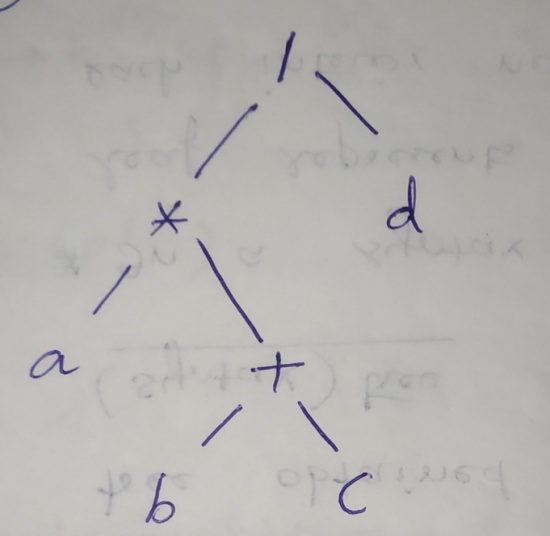 /
* d
a +
b c